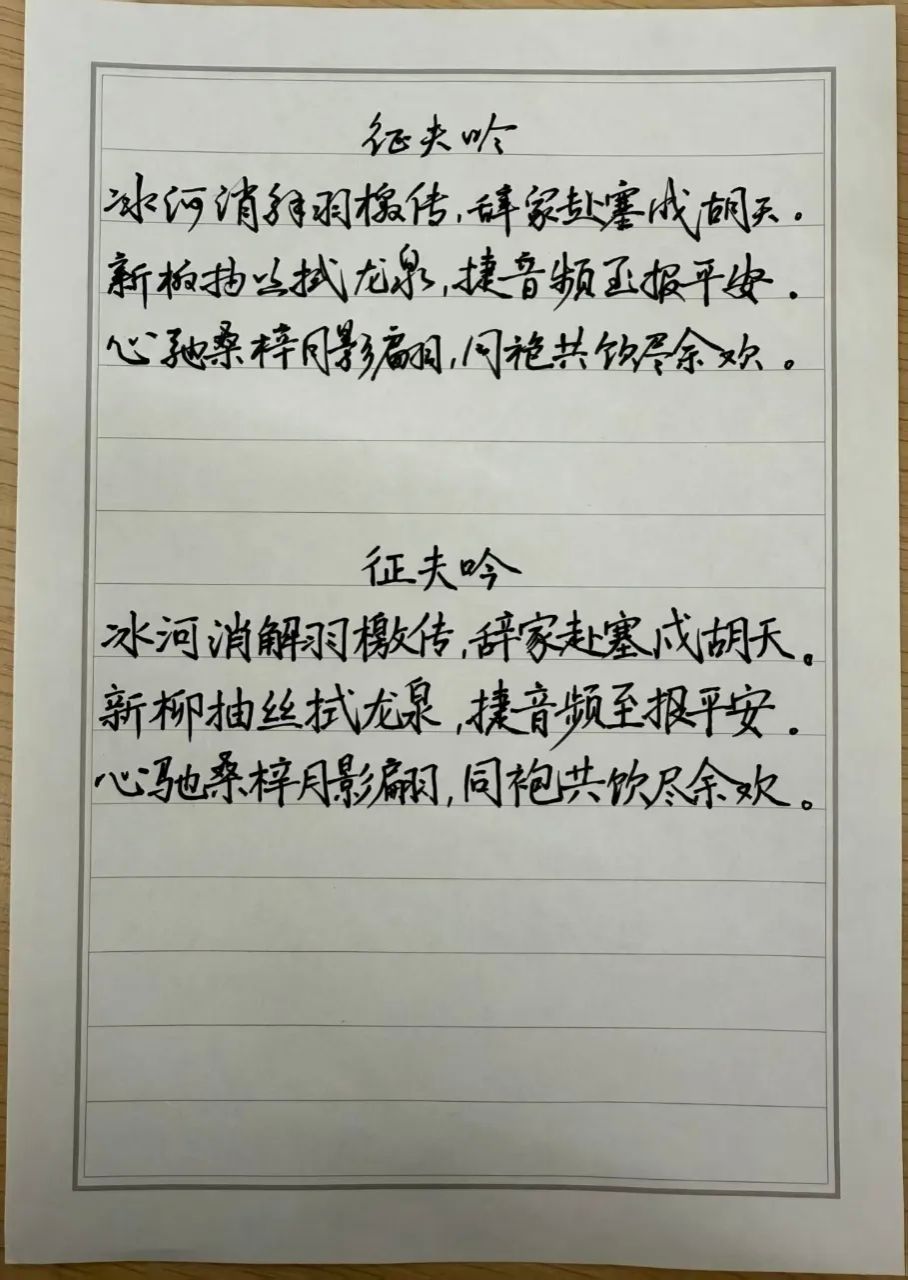 征夫吟
冰河消解羽檄传，辞家赴塞戍胡天。
新柳抽丝拭龙泉，捷音频至报平安。
心驰桑梓月影翩，同袍共饮尽余欢。
征夫吟
冰河消解羽檄传，辞家赴塞戍胡天。
新柳抽丝拭龙泉，捷音频至报平安。
心驰桑梓月影翩，同袍共饮尽余欢。